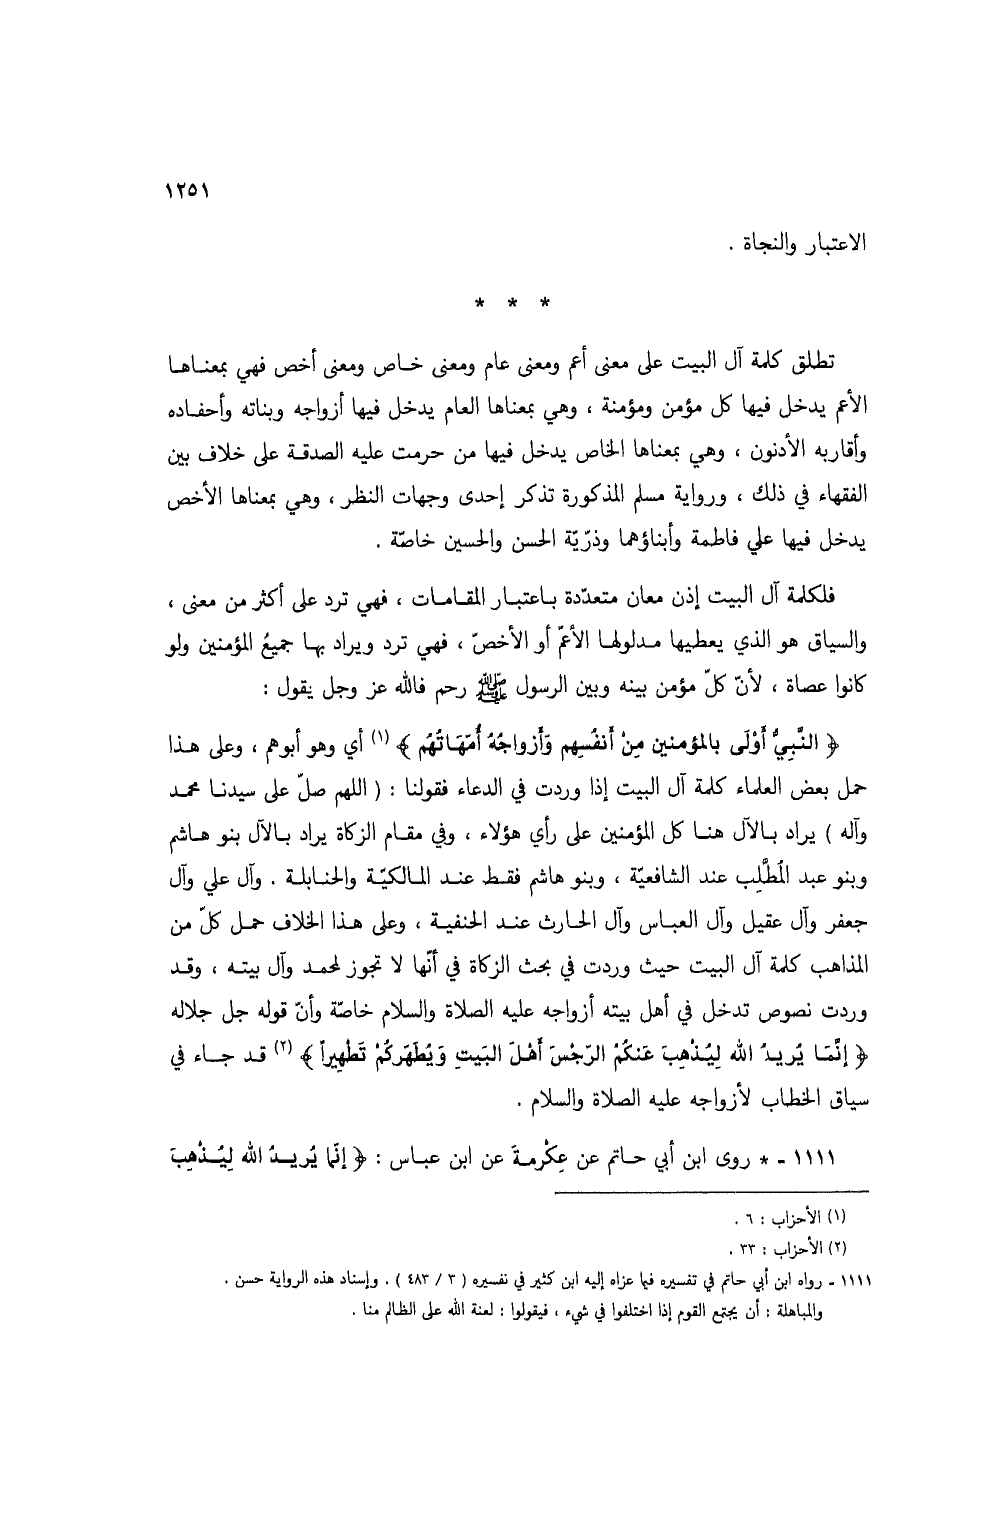 ١٢٥١
الاعتبار والنجاة .
* * *
تطلق كلمة آل البيت على معنى أعم ومعنى عام ومعنى خـاص ومعنى أخص فهي بمعنـاهـا
الأعم يدخل فيها كل مؤمن ومؤمنة ، وهي بمعناها العام يدخل فيها أزواجه وبناته وأحفـاده
وأقاربه الأدنون ، وهي بمعناها الخاص يدخل فيها من حرمت عليه الصدقـة على خلاف بين
الفقهاء في ذلك ، ورواية مسلم المذكورة تذكر إحدى وجهات النظر ، وهي بمعناها الأخص
يدخل فيها علي فاطمة وأبناؤهما وذرّيّة الحسن والحسين خاصّة .
فلكلمة آل البيت إذن معان متعدّدة بـاعتبـار المقـامـات ، فهي ترد على أكثر من معنى ،
والسياق هو الذي يعطيها مـدلولهـا الأعمّ أو الأخصّ ، فهي ترد ويراد بهـا جميعُ المؤمنين ولو
كانوا عصاة ، لأنّ كلّ مؤمن بينه وبين الرسول ﷺ رحم فالله عز وجل يقول :
﴿ النَّبِيُّ أَوْلَى بالمؤمنين مِنْ أَنفُسِهِم وَأَزواجُهُ أُمّهَاتُهُم ﴾ (١) أي وهو أبوهم ، وعلى هـذا
حمل بعض العلماء كلمة آل البيت إذا وردت في الدعاء فقولنا : ( اللهم صلّ على سيدنـا محمـد
وآله ) يراد بـالآل هنـا كل المؤمنين على رأي هؤلاء ، وفي مقـام الزكاة يراد بـالآل بنو هـاشم
وبنو عبد المُطَّلِب عند الشافعيّة ، وبنو هاشم فقـط عنـد المـالكيّـة والحنـابلـة . وآل علي وآل
جعفر وآل عقيل وآل العبـاس وآل الحـارث عنـد الحنفيـة ، وعلى هـذا الخلاف حمـل كلّ من
المذاهب كلمة آل البيت حيث وردت في بحث الزكاة في أنّها لا تجوز لمحمـد وآل بيتـه ، وقـد
وردت نصوص تدخل في أهل بيته أزواجه عليه الصلاة والسلام خاصّة وأنّ قوله جل جلاله
﴿ إنَّمَـا يُريـدُ الله لِيُـذْهِبَ عَنكُمُ الرّجْسَ أَهْلَ البَيتِ وَيُطَهّركُمْ تَطْهِيراً ﴾ (٢) قـد جـاء في
سياق الخطاب لأزواجه عليه الصلاة والسلام .
١١١١ ـ * روى ابن أبي حـاتم عن عِكْرمـةَ عن ابن عبـاس : ﴿ إنّا يُريـدُ الله لِيُـذْهِبَ
(١) الأحزاب : ٦ .
(٢) الأحزاب : ٣٣ .
١١١١ ـ رواه ابن أبي حاتم في تفسيره فيما عزاه إليه ابن كثير في تفسيره ( ٣ / ٤٨٣ ) . وإسناد هذه الرواية حسن .
والمباهلة : أن يجتمع القوم إذا اختلفوا في شيء ، فيقولوا : لعنة الله على الظالم منا .